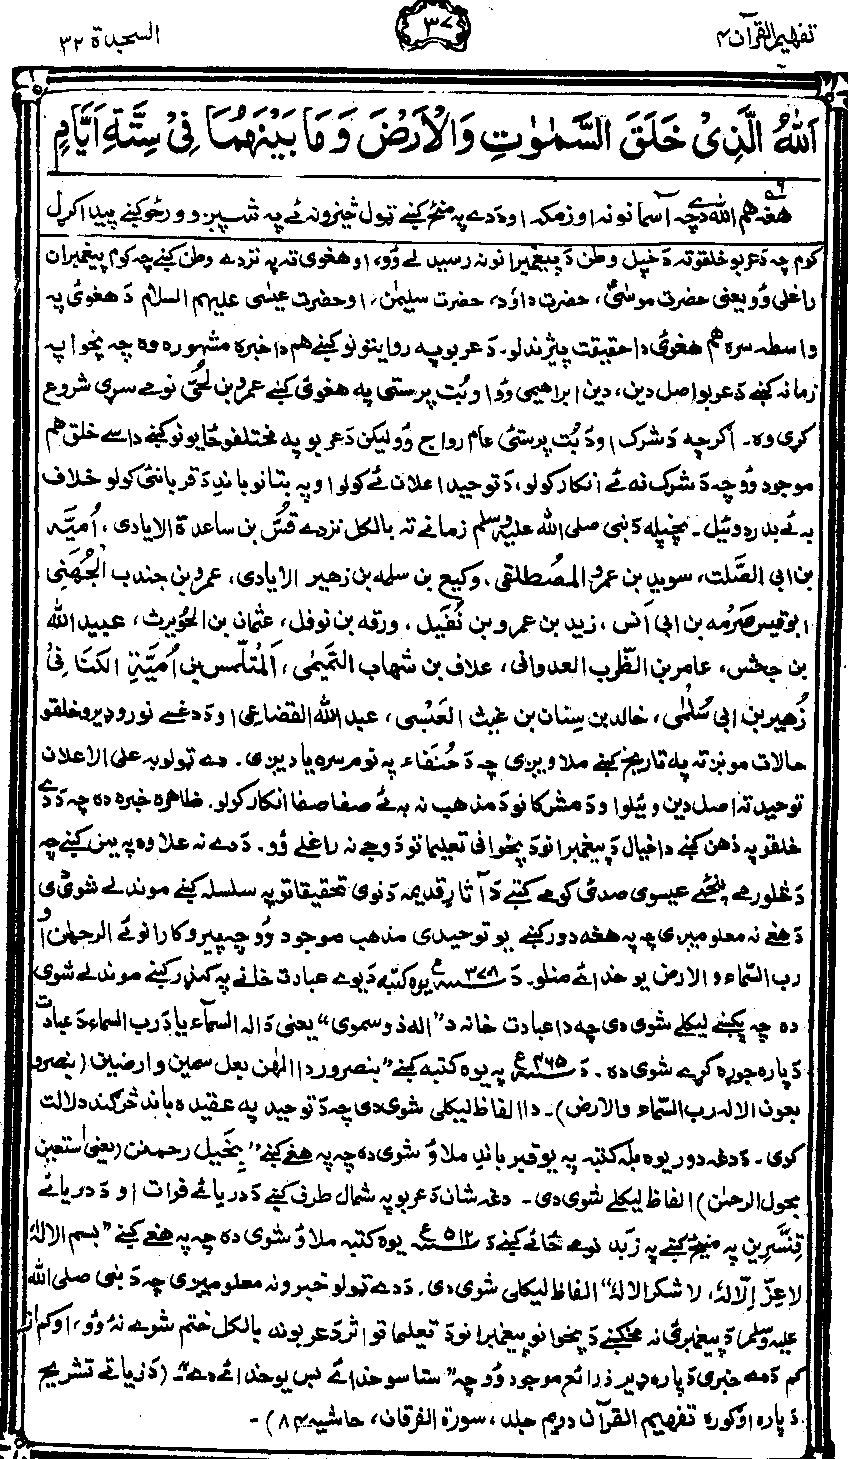 تفهیم القرآن ۴ ۳۷ السجدة ۳۲
اَللّٰهُ الَّذِیْ خَلَقَ السَّمٰوٰتِ وَالْاَرْضَ وَمَا بَیْنَهُمَا فِیْ سِتَّةِ اَیَّامٍ
هغه هم الله دے چه آسمانونه او زمکه او د دے په منځ کښے ټول څیزونه ئے په شپږو ورځو کښے پیدا کړل
کوم چه د عربو خلقو ته د خپل وطن د پیغمبرانو نه رسیدلے وُو، او هغوی ته په نزدے وطن کښے چه کوم پیغمبران
راغلی وُو یعنی حضرت موسٰیؑ، حضرت داؤد، حضرت سلیمٰن، او حضرت عیسٰی علیهم السلام د هغوی په
واسطه سره هم هغوی دا حقیقت پیژندلو۔ د عربو په روایتونو کښے هم دا خبره مشهوره وه چه پخوا په
زمانه کښے د عربو اصل دین، دین ابراهیمی وو او بُت پرستی په هغوی کښے عمرو بن لُحَیّ نومے سړی شروع
کړی وه۔ اگرچه د شرک او د بُت پرستئ عام رواج وُو لیکن د عربو په مختلفو ځایونو کښے داسے خلق هم
موجود وُو چه د شرک نه ئے انکار کولو، د توحید اعلان ئے کولو او په بتانو باندِ د قربانئ کولو خلاف
به ئے بد رد وئیل۔ پخپله د نبی صلی الله علیه وسلم زمانے ته بالکل نزدے قُسّ بن ساعدة الایادی، اُمیّه
بن ابی الصَّلت، سوید بن عمرو المصْطلقی، وکیع بن سلمه بن زهیر الایادی، عمرو بن جندب الجُهَنِی
ابوقیس صَرْمه بن ابی اَنس، زید بن عمرو بن نُفَیل، ورقه بن نوفل، عثمان بن الحُوَیرث، عبید الله
بن جحش، عامر بن الظَّرب العدوانی، علاف بن شهاب التَّمِیمی، اَلمُتَلَمِّس بن اُمَیَّة الکنَانِیْ
زُهیر بن ابی سُلْمٰی، خالد بن سِنان بن غیث العَبْسی، عبد الله القضاعی او د دغسے نورو ډیرو خلقو
حالات مونږ ته په تاریخ کښے ملاویږی چه د حُنَفاء په نوم سره یادیږی۔ دے ټولو به علی الاعلان
توحید ته اصل دین وئیلو او د مشرکانو د مذهب نه به ئے صفا صفا انکار کولو۔ ظاهره خبره ده چه د دے
خلقو په ذهن کښے دا خیال د پیغمبرانو د پخوانی تعلیماتو د وجے نه راغلے وُو۔ د دے نه علاوه په یمن کښے چه
د څلورمے پنځمے عیسوی صدئ کومے کتبے د آثار قدیمه د نوی تحقیقاتو په سلسله کښے موندلے شوئ دی
د هغے نه معلومیږی چه په هغه دور کښے یو توحیدی مذهب موجود وُو چه پیروکارانو ئے الرحمٰن او
رب السّماء والارض یو خدائے منلو۔ د ۳۷۸ء یوه کتبه د یوے عبادت خانے په کنډر کښے موندلے شوی
ده چه پکښے لیکلے شوی دی چه دا عبادت خانه د "اله ذوسموی" یعنی د اله السمآء یا د رب السماء د عبادت
د پاره جوړه کړے شوی ده۔ د ۴۶۵ء په یوه کتبه کښے "بنصر وردا الهن بعل سمین وارضین (بنصرو
بعون الاله رب السّماء والارض)۔ دا الفاظ لیکلی شوی دی چه د توحید په عقیده باندِ څرګند دلالت
کوی۔ د دغه دور یوه بله کتبه په یو قبر باندِ ملاؤ شوی ده چه په هغے کښے "بِخَیل رحمنن (یعنی استعین
بحول الرحمٰن) الفاظ لیکلے شوی دی۔ دغه شان د عربو په شمال طرف کښے د دریائے فرات او د دریائے
قِنَّسْرِین په مینځ کښے په زَبد نومے ځائے کښے د ۵۱۲ء یوه کتبه ملاؤ شوی ده چه په هغے کښے "بسم الالهُ
لا عِزّ اِلّا لهٗ، لا شکر الا لهٗ" الفاظ لیکلی شوی دی۔ د دے ټولو خبرو نه معلومیږی چه د نبی صلی الله
علیه وسلم د پیغمبرئ نه مخکښے د پخوانو پیغمبرانو د تعلیماتو اثر د عربو نه بالکل ختم شوے نهٔ وُو، او کم از
کم د دے خبرے د پاره ډیر ذرائع موجود وُو چه "ستاسو خدائے بس یو خدائے دے"۔ (د زیاتے تشریح
د پاره اوګوره تفهیم القرآن دریم جلد، سورة الفرقان، حاشیه ۸۴)۔